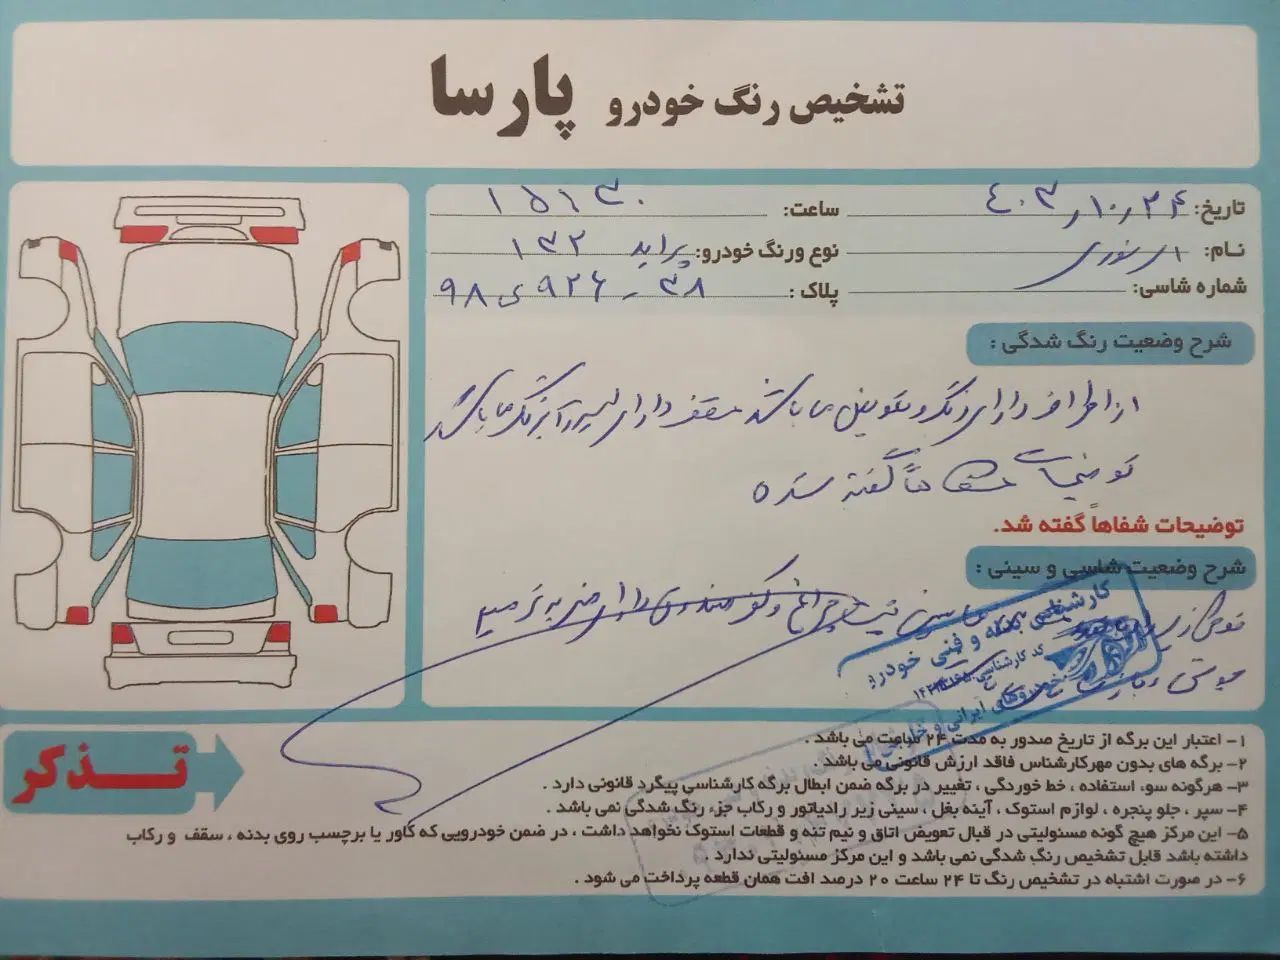 تشخیص رنگ خودرو پارسا
تاریخ: ۴۰۳٫۱۰٫۲۴ ساعت: ۱۵٫۳۰
نام: نوع ورنگ خودرو: پراید ۱۳۲
شماره شاسی: پلاک: ۳۸ - ۹۲۶ ی ۹۸
شرح وضعیت رنگ شدگی :
از اطراف دارای رنگ و تعویض می باشد سقف دارای لیسه و آبرنگ می باشد
توضیحات شفاهاً گفته شده
توضیحات شفاهاً گفته شد.
شرح وضعیت شاسی و سینی :
کارشناسی بدنه و فنی خودرو
کد کارشناسی
خودروهای ایرانی و خارجی
تـذکر
۱- اعتبار این برگه از تاریخ صدور به مدت ۲۴ ساعت می باشد .
۲- برگه های بدون مهرکارشناس فاقد ارزش قانونی می باشد .
۳- هرگونه سوء استفاده ، خط خوردگی ، تغییر در برگه ضمن ابطال برگه کارشناسی پیگرد قانونی دارد .
۴- سپر ، جلو پنجره ، لوازم استوک ، آینه بغل ، سینی زیر رادیاتور و رکاب جزء رنگ شدگی نمی باشد .
۵- این مرکز هیچ گونه مسئولیتی در قبال تعویض اتاق و نیم تنه و قطعات استوک نخواهد داشت ، در ضمن خودرویی که کاور یا برچسب روی بدنه ، سقف و رکاب
داشته باشد قابل تشخیص رنگ شدگی نمی باشد و این مرکز مسئولیتی ندارد .
۶- در صورت اشتباه در تشخیص رنگ تا ۲۴ ساعت ۲۰ درصد افت همان قطعه پرداخت می شود .